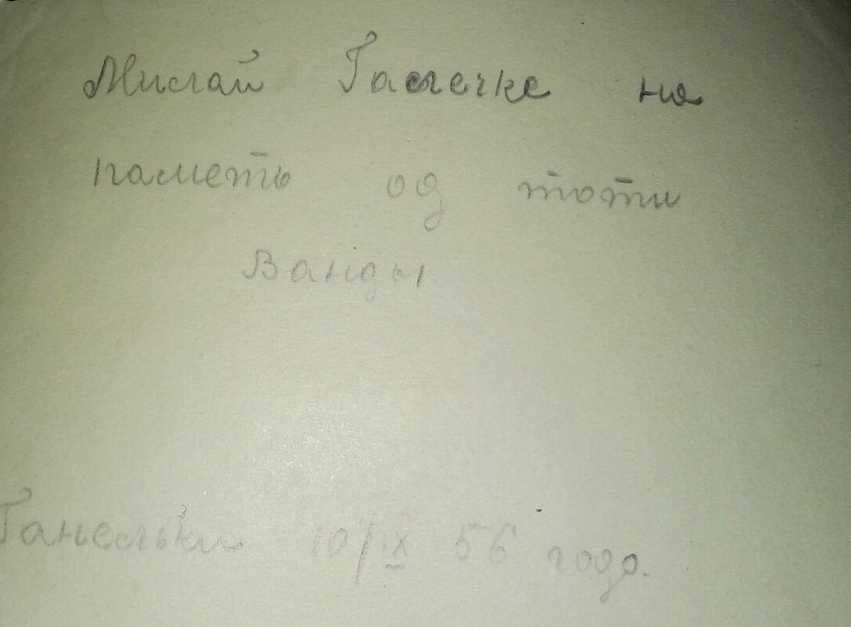 Милай Галечке на
паметь од тоти
Ванды
Ганельки 10/IX 56 года.